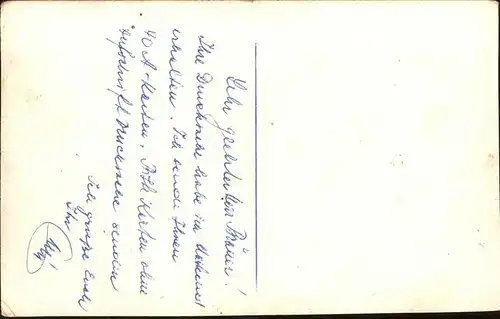 Sehr geehrter Herr Bräuer!
Ihre Drucksache habe ich dankend
erhalten. Ich sende Ihnen
40 A-Karten. Bitte Karten ohne
Aufschrift Drucksache senden.
Ich grüße Euch
Ihr